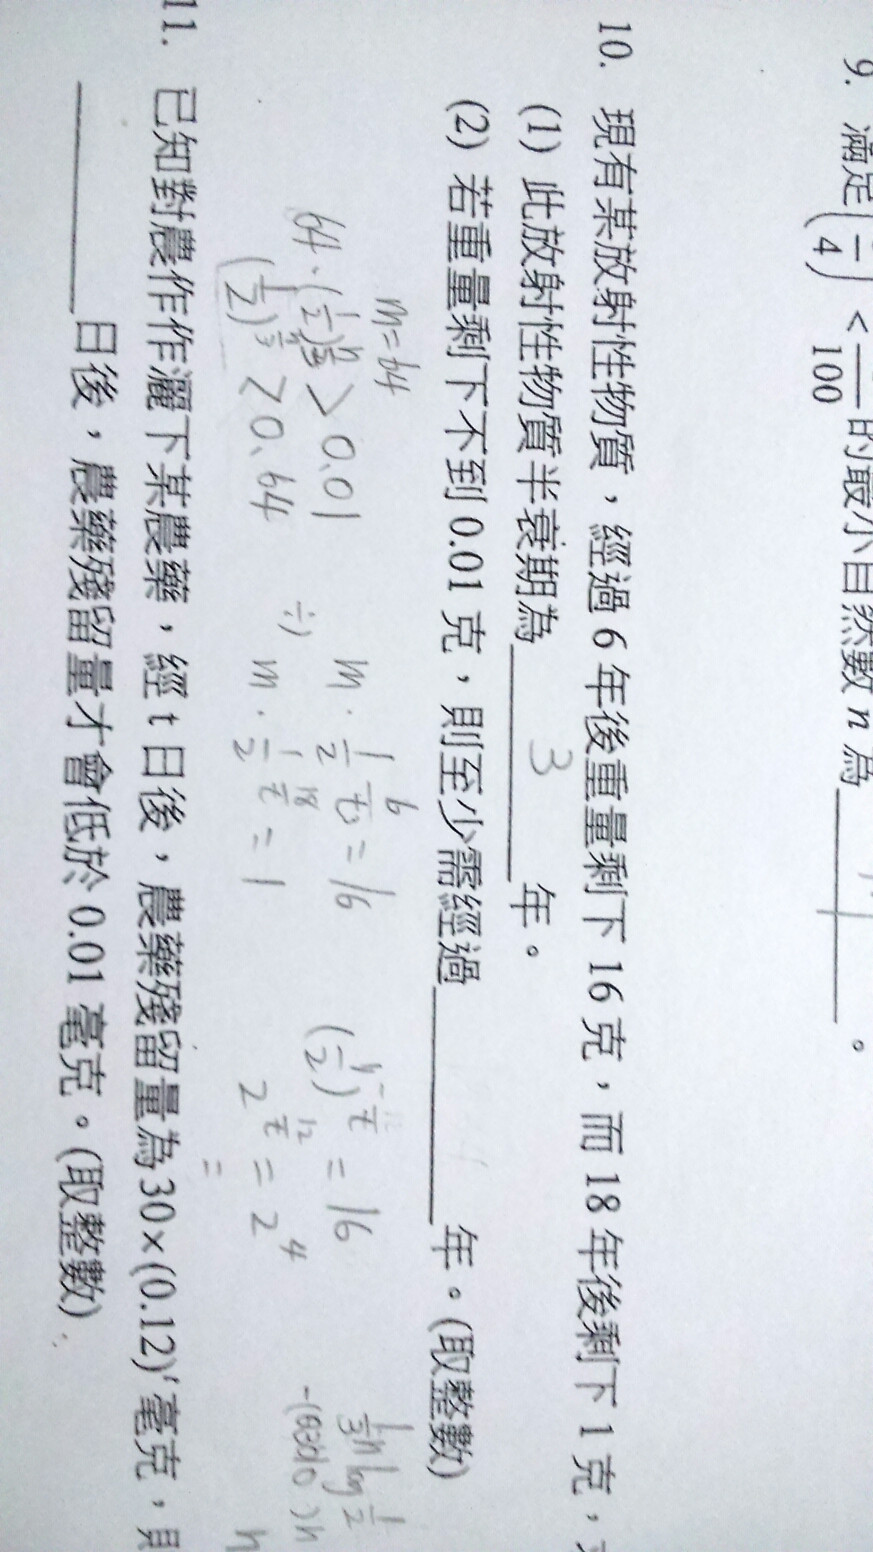 9. 滿足(1/4) < /100 的最小自然數 n 為 。
10. 現有某放射性物質，經過 6 年後重量剩下 16 克，而 18 年後剩下 1 克，
(1) 此放射性物質半衰期為 3 年。
(2) 若重量剩下不到 0.01 克，則至少需經過 年。(取整數)
m=64
64·(1/2)^(n/3) > 0.01
(1/2)^(n/3) > 0.64
m·1/2^(6/t) = 16
÷) m·1/2^(18/t) = 1
= 16
2^(12/t) = 2^4
=
1/3 n log 1/2
11. 已知對農作作灑下某農藥，經 t 日後，農藥殘留量為 30×(0.12)^t 毫克，則
日後，農藥殘留量才會低於 0.01 毫克。(取整數)